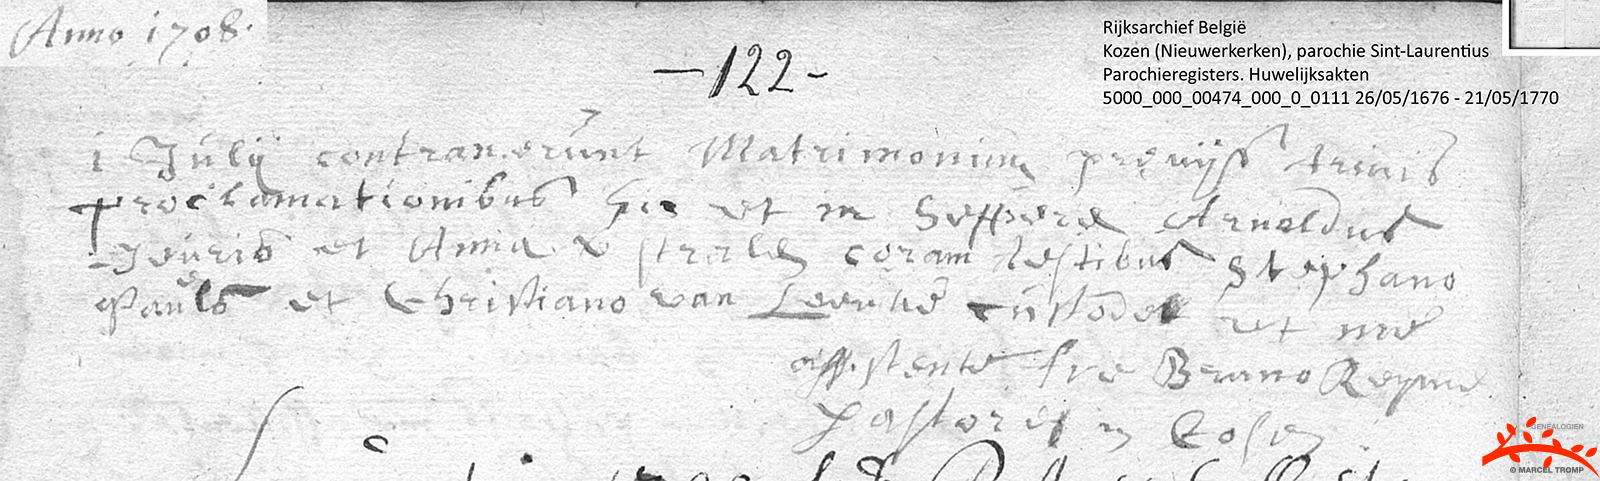 Anno 1708.
Rijksarchief België
Kozen (Nieuwerkerken), parochie Sint-Laurentius
Parochieregisters. Huwelijksakten
5000_000_00474_000_0_0111 26/05/1676 - 21/05/1770
-122-
1 Julÿ contraxerunt Matrimonium trinis
proclamationibus hic et in Arnoldus
Jeuris et Anna coram testibus Stephano
Pauels et Christiano van custode et me
assistente fre Bruno
pastore in Cosen
GENEALOGIEN
© MARCEL TROMP